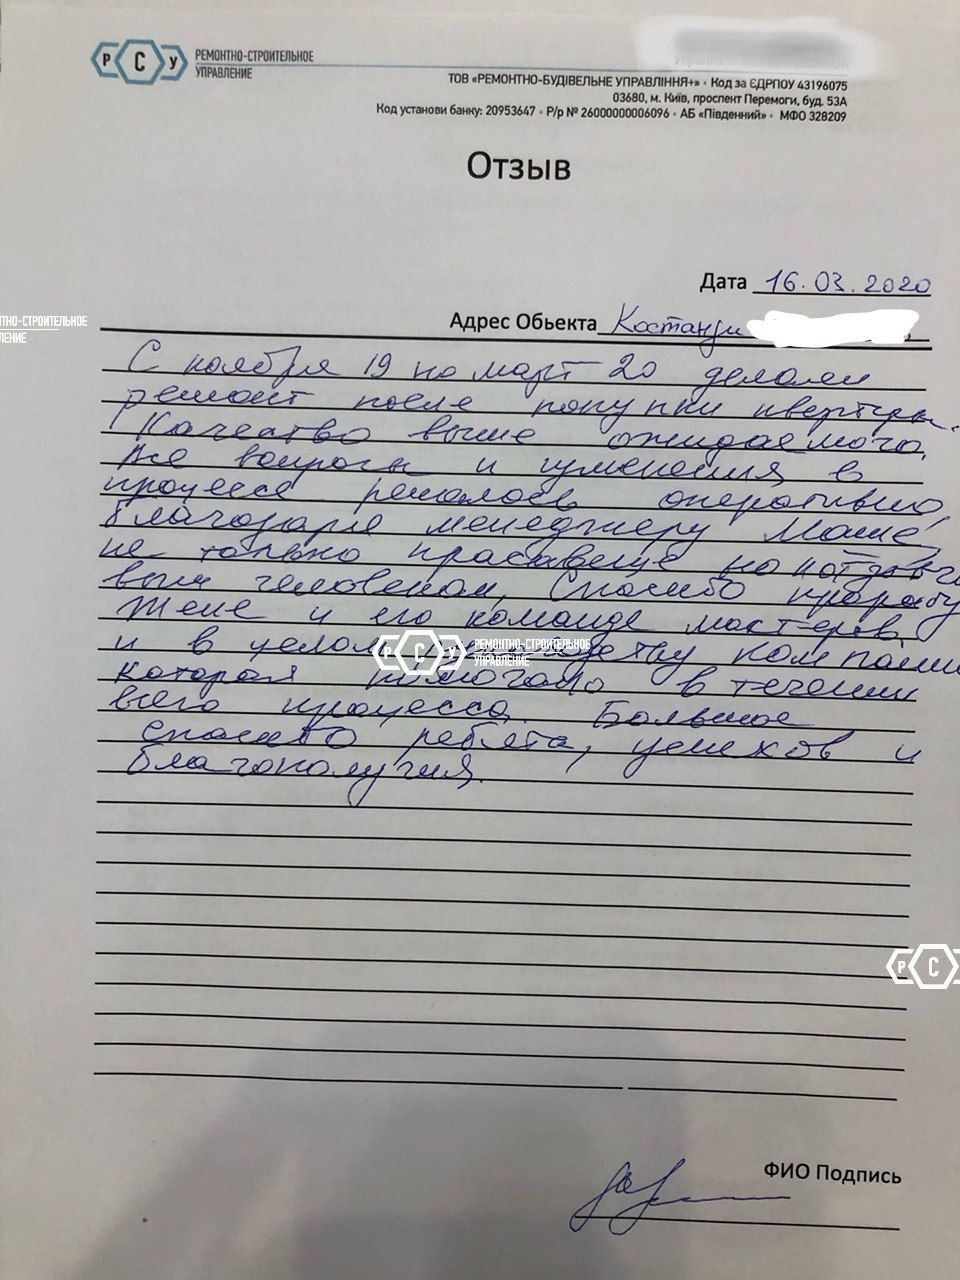 РСУ РЕМОНТНО-СТРОИТЕЛЬНОЕ
УПРАВЛЕНИЕ
ТОВ «РЕМОНТНО-БУДІВЕЛЬНЕ УПРАВЛІННЯ+» • Код за ЄДРПОУ 43196075
03680, м. Київ, проспект Перемоги, буд. 53А
Код установи банку: 20953647 • Р/р № 26000000006096 • АБ «Південний» • МФО 328209
Отзыв
Дата 16.03.2020
Адрес Обьекта Костанди
С ноября 19 по март 20 делали
ремонт после покупки квартиры.
Качество выше ожидаемого,
Все вопросы и изменения в
процессе решалось оперативно,
благодаря менеджеру Маше,
не только красавице но и
вым человеком, Спасибо прорабу
Жене и его команде мастеров
и в целом компании
которая помогала в течении
всего процесса. Большое
спасибо ребята, успехов и
благополучия.
РСУ РЕМОНТНО-СТРОИТЕЛЬНОЕ
УПРАВЛЕНИЕ
ФИО Подпись